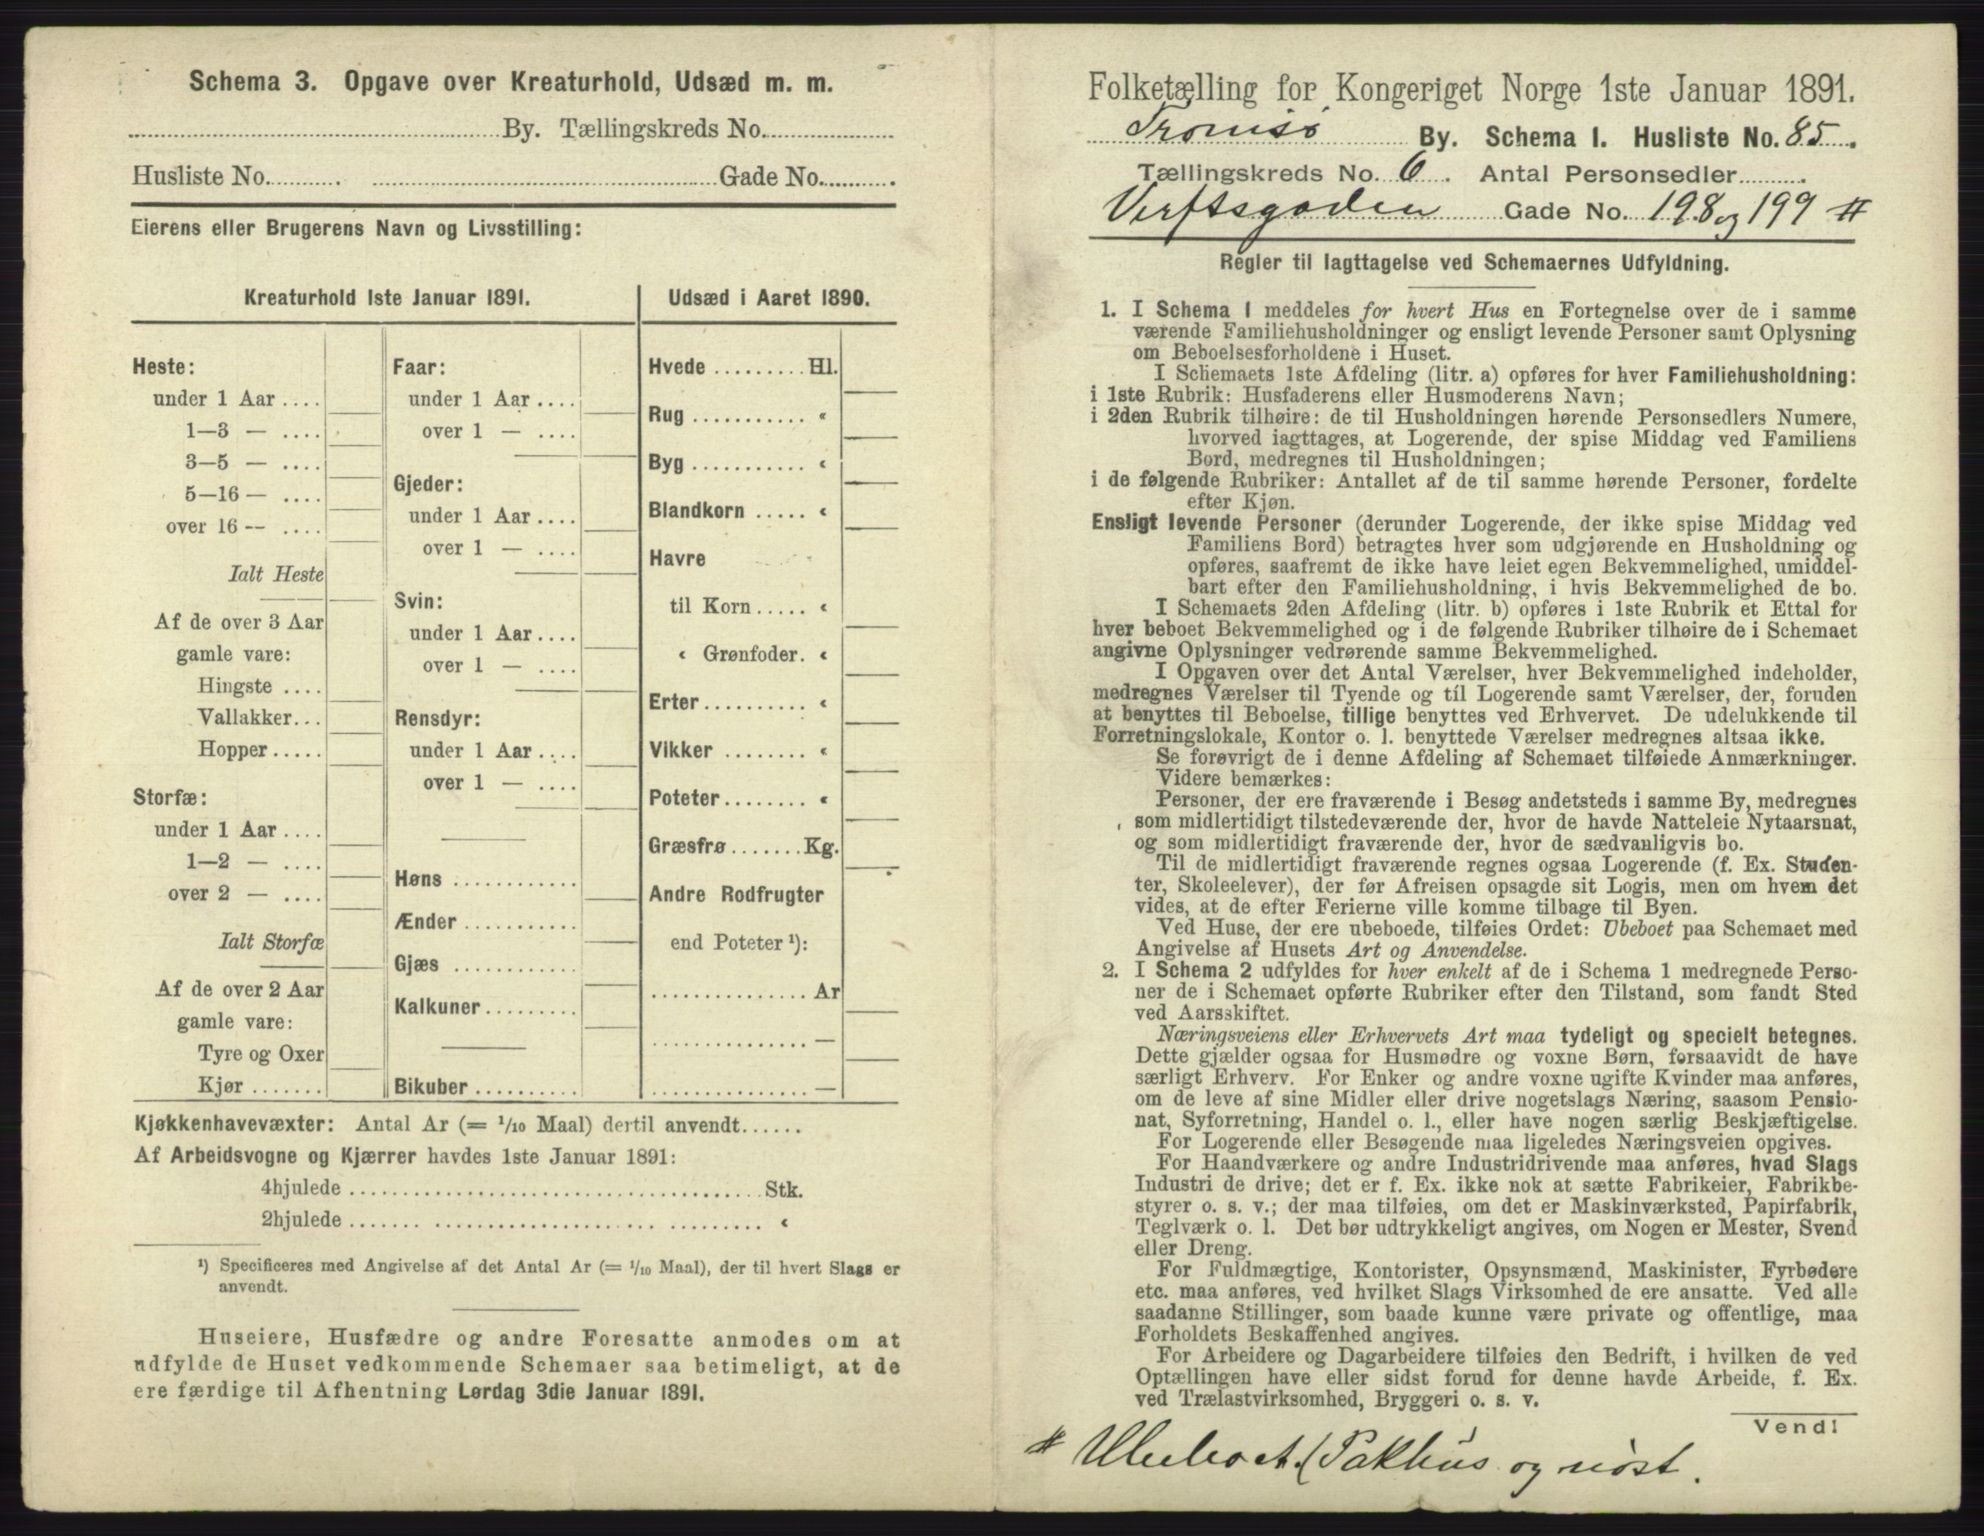 Schema 3. Opgave over Kreaturhold, Udsæd m. m.
By. Tællingskreds No.
Husliste No. Gade No.
Eierens eller Brugerens Navn og Livsstilling:
Kreaturhold 1ste Januar 1891.
Heste:
under 1 Aar
1—3 —
3—5 —
5—16 —
over 16 —
Ialt Heste
Af de over 3 Aar
gamle vare:
Hingste
Vallakker
Hopper
Storfæ:
under 1 Aar
1—2 —
over 2 —
Ialt Storfæ
Af de over 2 Aar
gamle vare:
Tyre og Oxer
Kjør
Faar:
under 1 Aar
over 1 —
Gjeder:
under 1 Aar
over 1 —
Svin:
under 1 Aar
over 1 —
Rensdyr:
under 1 Aar
over 1 —
Høns
Ænder
Gjæs
Kalkuner
Bikuber
Udsæd i Aaret 1890.
Hvede Hl.
Rug «
Byg «
Blandkorn «
Havre
til Korn «
« Grønfoder. «
Erter «
Vikker «
Poteter «
Græsfrø Kg.
Andre Rodfrugter
end Poteter ¹):
Ar
—
—
Kjøkkenhavevæxter: Antal Ar (= 1/10 Maal) dertil anvendt
Af Arbeidsvogne og Kjærrer havdes 1ste Januar 1891:
4hjulede Stk.
2hjulede «
¹) Specificeres med Angivelse af det Antal Ar (= 1/10 Maal), der til hvert Slags er
anvendt.
Huseiere, Husfædre og andre Foresatte anmodes om at
udfylde de Huset vedkommende Schemaer saa betimeligt, at de
ere færdige til Afhentning Lørdag 3die Januar 1891.
Folketælling for Kongeriget Norge 1ste Januar 1891.
Tromsø By. Schema I. Husliste No. 85.
Tællingskreds No. 6. Antal Personsedler
Verftsgaden Gade No. 198 og 199 #
Regler til Iagttagelse ved Schemaernes Udfyldning.
1. I Schema 1 meddeles for hvert Hus en Fortegnelse over de i samme
værende Familiehusholdninger og ensligt levende Personer samt Oplysning
om Beboelsesforholdene i Huset.
I Schemaets 1ste Afdeling (litr. a) opføres for hver Familiehusholdning:
i 1ste Rubrik: Husfaderens eller Husmoderens Navn;
i 2den Rubrik tilhøire: de til Husholdningen hørende Personsedlers Numere,
hvorved iagttages, at Logerende, der spise Middag ved Familiens
Bord, medregnes til Husholdningen;
i de følgende Rubriker: Antallet af de til samme hørende Personer, fordelte
efter Kjøn.
Ensligt levende Personer (derunder Logerende, der ikke spise Middag ved
Familiens Bord) betragtes hver som udgjørende en Husholdning og
opføres, saafremt de ikke have leiet egen Bekvemmelighed, umiddel-
bart efter den Familiehusholdning, i hvis Bekvemmelighed de bo.
I Schemaets 2den Afdeling (litr. b) opføres i 1ste Rubrik et Ettal for
hver beboet Bekvemmelighed og i de følgende Rubriker tilhøire de i Schemaet
angivne Oplysninger vedrørende samme Bekvemmelighed.
I Opgaven over det Antal Værelser, hver Bekvemmelighed indeholder,
medregnes Værelser til Tyende og til Logerende samt Værelser, der, foruden
at benyttes til Beboelse, tillige benyttes ved Erhvervet. De udelukkende til
Forretningslokale, Kontor o. l. benyttede Værelser medregnes altsaa ikke.
Se forøvrigt de i denne Afdeling af Schemaet tilføiede Anmærkninger.
Videre bemærkes:
Personer, der ere fraværende i Besøg andetsteds i samme By, medregnes
som midlertidigt tilstedeværende der, hvor de havde Natteleie Nytaarsnat,
og som midlertidigt fraværende der, hvor de sædvanligvis bo.
Til de midlertidigt fraværende regnes ogsaa Logerende (f. Ex. Studen-
ter, Skoleelever), der før Afreisen opsagde sit Logis, men om hvem det
vides, at de efter Ferierne ville komme tilbage til Byen.
Ved Huse, der ere ubeboede, tilføies Ordet: Ubeboet paa Schemaet med
Angivelse af Husets Art og Anvendelse.
2. I Schema 2 udfyldes for hver enkelt af de i Schema 1 medregnede Perso-
ner de i Schemaet opførte Rubriker efter den Tilstand, som fandt Sted
ved Aarsskiftet.
Næringsveiens eller Erhvervets Art maa tydeligt og specielt betegnes.
Dette gjælder ogsaa for Husmødre og voxne Børn, forsaavidt de have
særligt Erhverv. For Enker og andre voxne ugifte Kvinder maa anføres,
om de leve af sine Midler eller drive nogetslags Næring, saasom Pensio-
nat, Syforretning, Handel o. l., eller have nogen særlig Beskjæftigelse.
For Logerende eller Besøgende maa ligeledes Næringsveien opgives.
For Haandværkere og andre Industridrivende maa anføres, hvad Slags
Industri de drive; det er f. Ex. ikke nok at sætte Fabrikeier, Fabrikbe-
styrer o. s. v.; der maa tilføies, om det er Maskinværksted, Papirfabrik,
Teglværk o. l. Det bør udtrykkeligt angives, om Nogen er Mester, Svend
eller Dreng.
For Fuldmægtige, Kontorister, Opsynsmænd, Maskinister, Fyrbødere
etc. maa anføres, ved hvilket Slags Virksomhed de ere ansatte. Ved alle
saadanne Stillinger, som baade kunne være private og offentlige, maa
Forholdets Beskaffenhed angives.
For Arbeidere og Dagarbeidere tilføies den Bedrift, i hvilken de ved
Optællingen have eller sidst forud for denne havde Arbeide, f. Ex.
ved Trælastvirksomhed, Bryggeri o. s. v.
Vend!
# Ubeboet. (Pakhus og nöst.